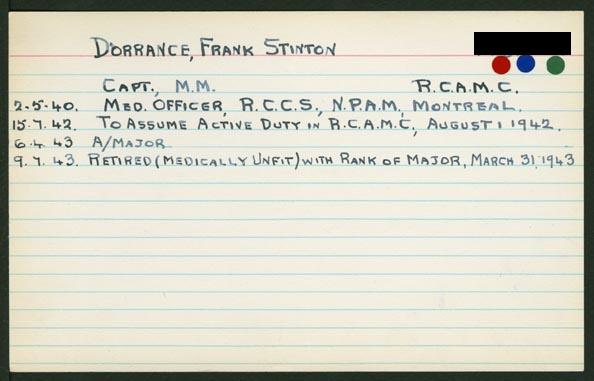 DORRANCE, FRANK STINTON
CAPT., M.M. R.C.A.M.C.
2-5-40. MED. OFFICER, R.C.C.S., N.P.A.M, MONTREAL.
15.7.42. TO ASSUME ACTIVE DUTY IN R.C.A.M.C, AUGUST 1 1942.
6.4.43 A/MAJOR
9.7.43. RETIRED (MEDICALLY UNFIT) WITH RANK OF MAJOR, MARCH 31, 1943